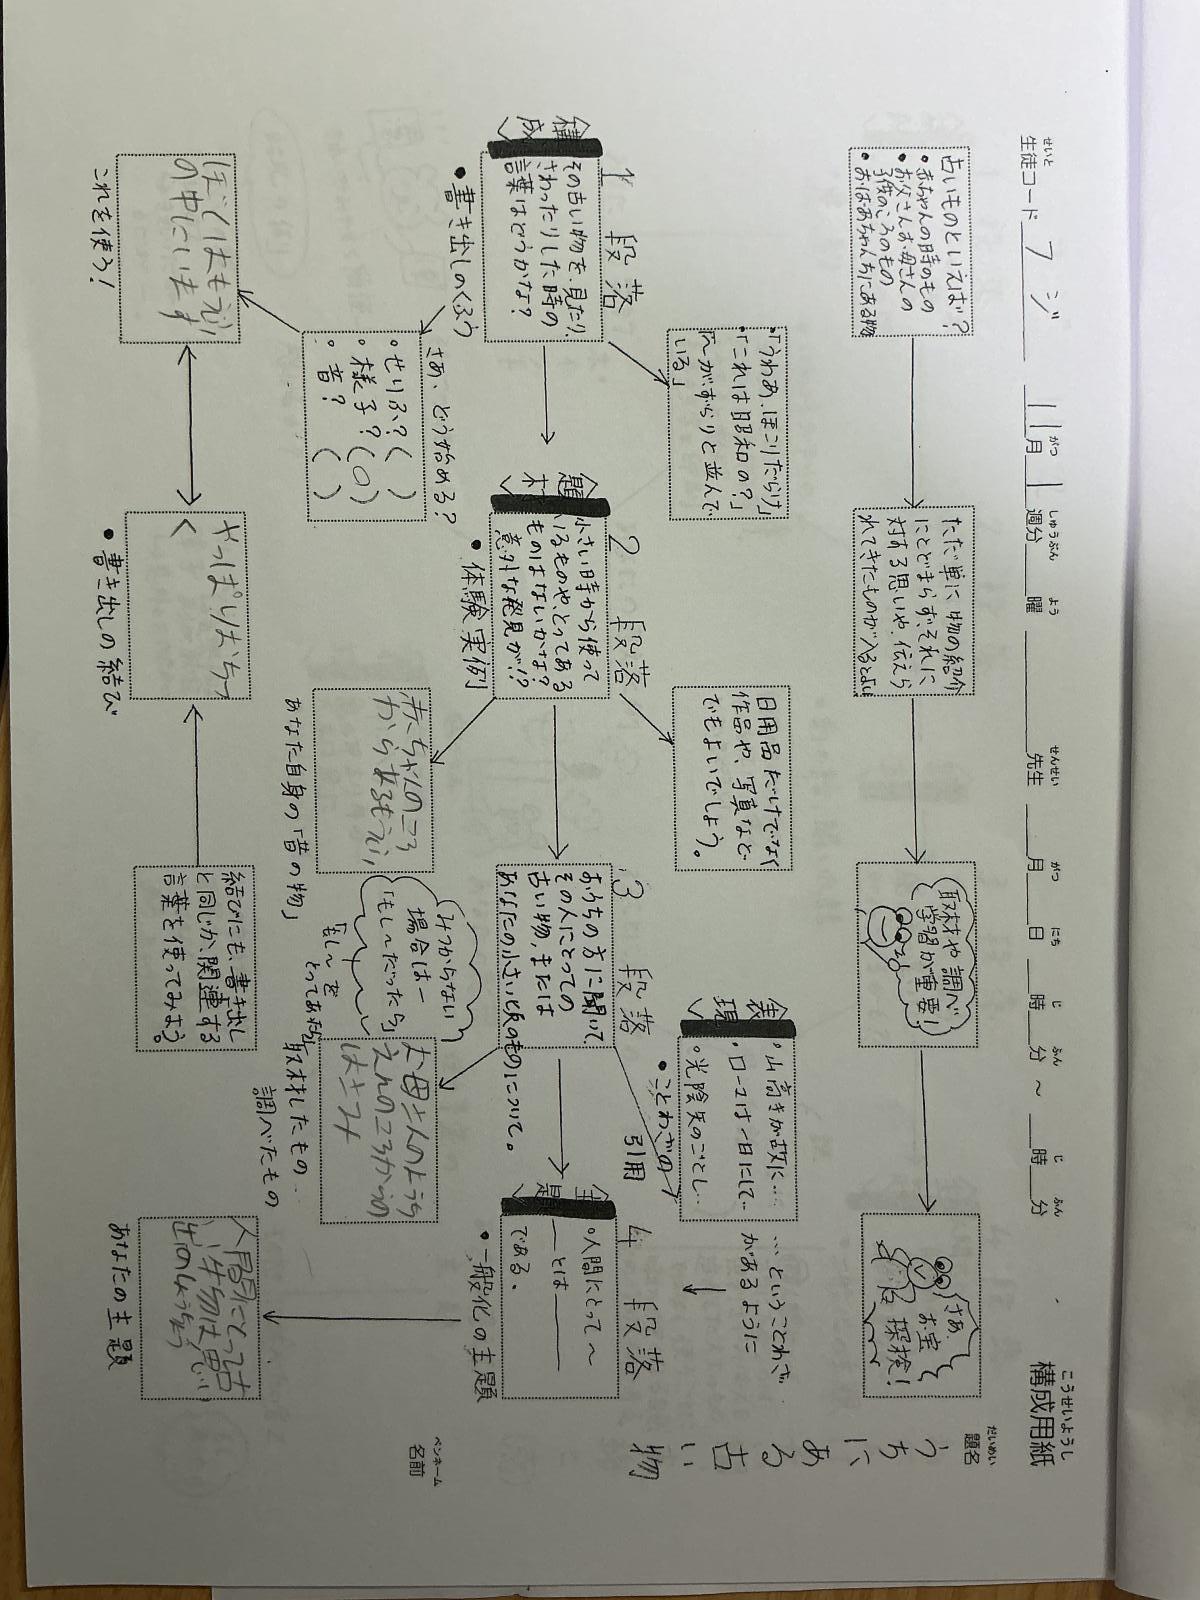 こうせいようし
構成用紙
せいと
生徒コード フジ
がつ しゅうぶん よう せんせい がつ にち じ ふん じ ふん
11月 1 週分 曜 先生 月 日 時 分 ～ 時 分
だいめい
題名
うちにある古い物
ペンネーム
名前
古いものといえば？
・赤ちゃんの時のもの
・お父さんお母さんの
子供のころのもの
・おばあちゃんちにある物
ただ単に物の紹介
にとどまらず、それに
対する思いや、伝えら
れてきたものが入るとよい
取材や調べ
学習が重要！
さあ
お宝
探検！
・「うわあ、ほこりだらけ」
・「これは昭和の？」
「～がずらりと並んで
いる」
日用品だけでなく
作品や、写真など
でもよいでしょう。
表現
・山高きが故に…
・ローマは一日にして…
・光陰矢のごとし…
・ことわざの
引用
…ということわざ
があるように
1段落
構成
その古い物を、見たり、
さわったりした時の
言葉はどうかな？
・書き出しのくふう
2段落
題材
小さい時から使って
いるものや、とってある
ものはないかな？
意外な発見が！？
・体験実例
3段落
おうちの方に聞いて、
その人にとっての
古い物、または
あなたの小さい頃のもの について。
4段落
主題
・人間にとって～
――とは――
である。
・一般化の主題
さあ、どう始める？
・せりふ？（ ）
・様子？（○）
・音？（ ）
赤ちゃんのころ
からあるもうふ
あなた自身の「昔の物」
みつからない
場合は―
「もし～だったら」
「もし～を
とってあれば」
お母さんのようち
えんのころからの
はさみ
取材したもの
調べたもの
ぼくはもうふ
の中にいます
これを使ろ！
やっぱりおちつ
く
・書き出しの結び
結びにも、書き出し
と同じか、関連する
言葉を使ってみよう。
人間にとって古
い物は、思い
出の
あなたの主題